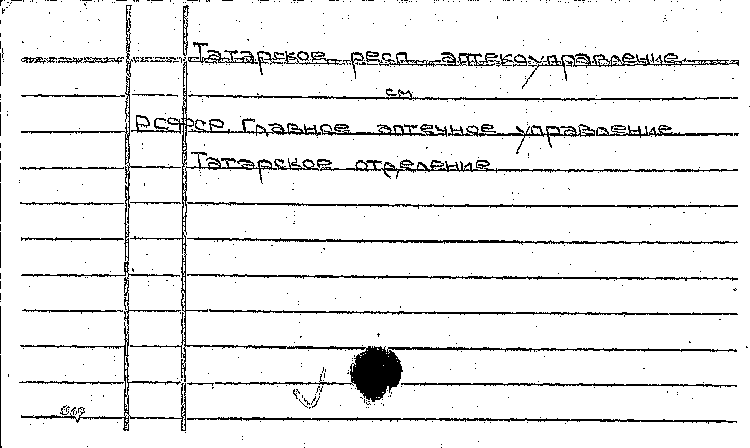 Татарское респ. аптекоуправление
см
РСФСР. Главное аптечное управление
Татарское отделение